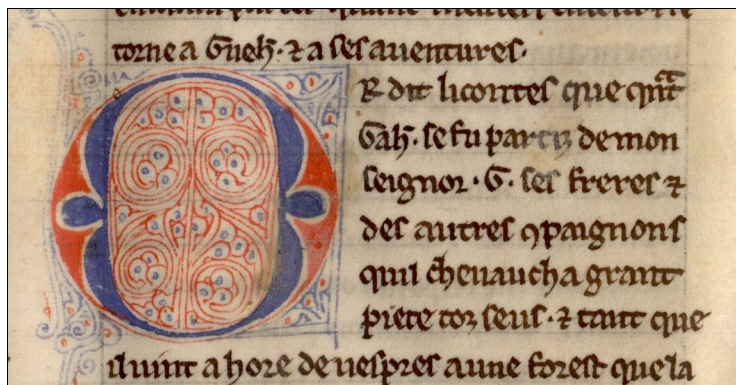 torne a Gueh̄. ⁊ a ses auentures.
OR dit licontes que qn̄t
Gah̄. se fu partiz de mon
seignor. G. ses freres ⁊
des autres ꝯpaignons
quil cheuaucha grant
piece toz seus. ⁊ tant que
il uint a hore de uespres a une forest que la